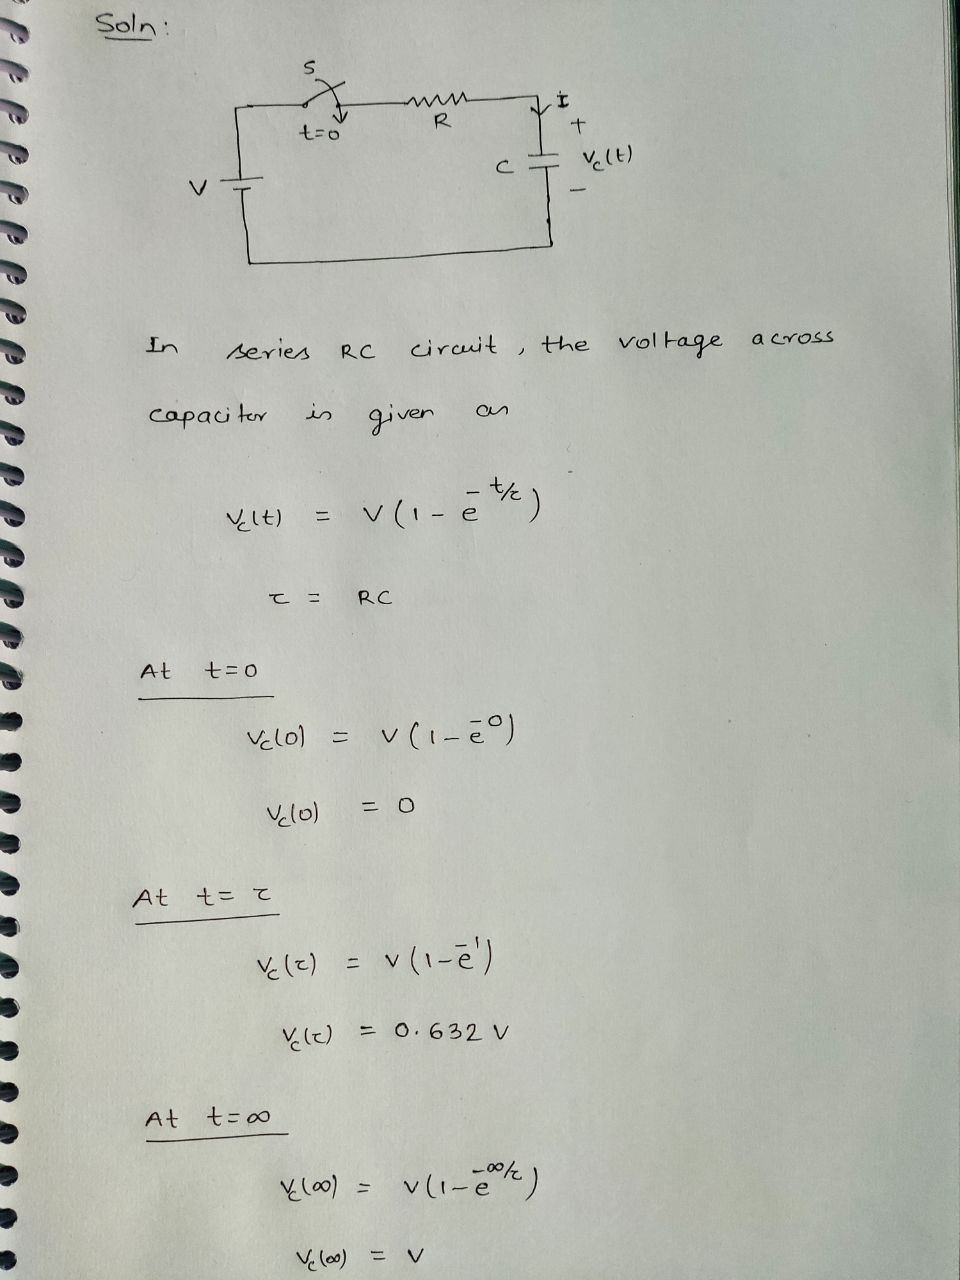 Soln:
S
t=0
R
I
+
V
C
Vc(t)
−
In series RC circuit, the voltage across
capacitor is given as
Vc(t) = V(1 - e^-t/τ)
τ = RC
At t=0
Vc(0) = V(1-e^-0)
Vc(0) = 0
At t= τ
Vc(τ) = V(1-e^-1)
Vc(τ) = 0.632 V
At t=∞
Vc(∞) = V(1-e^-∞/τ)
Vc(∞) = V